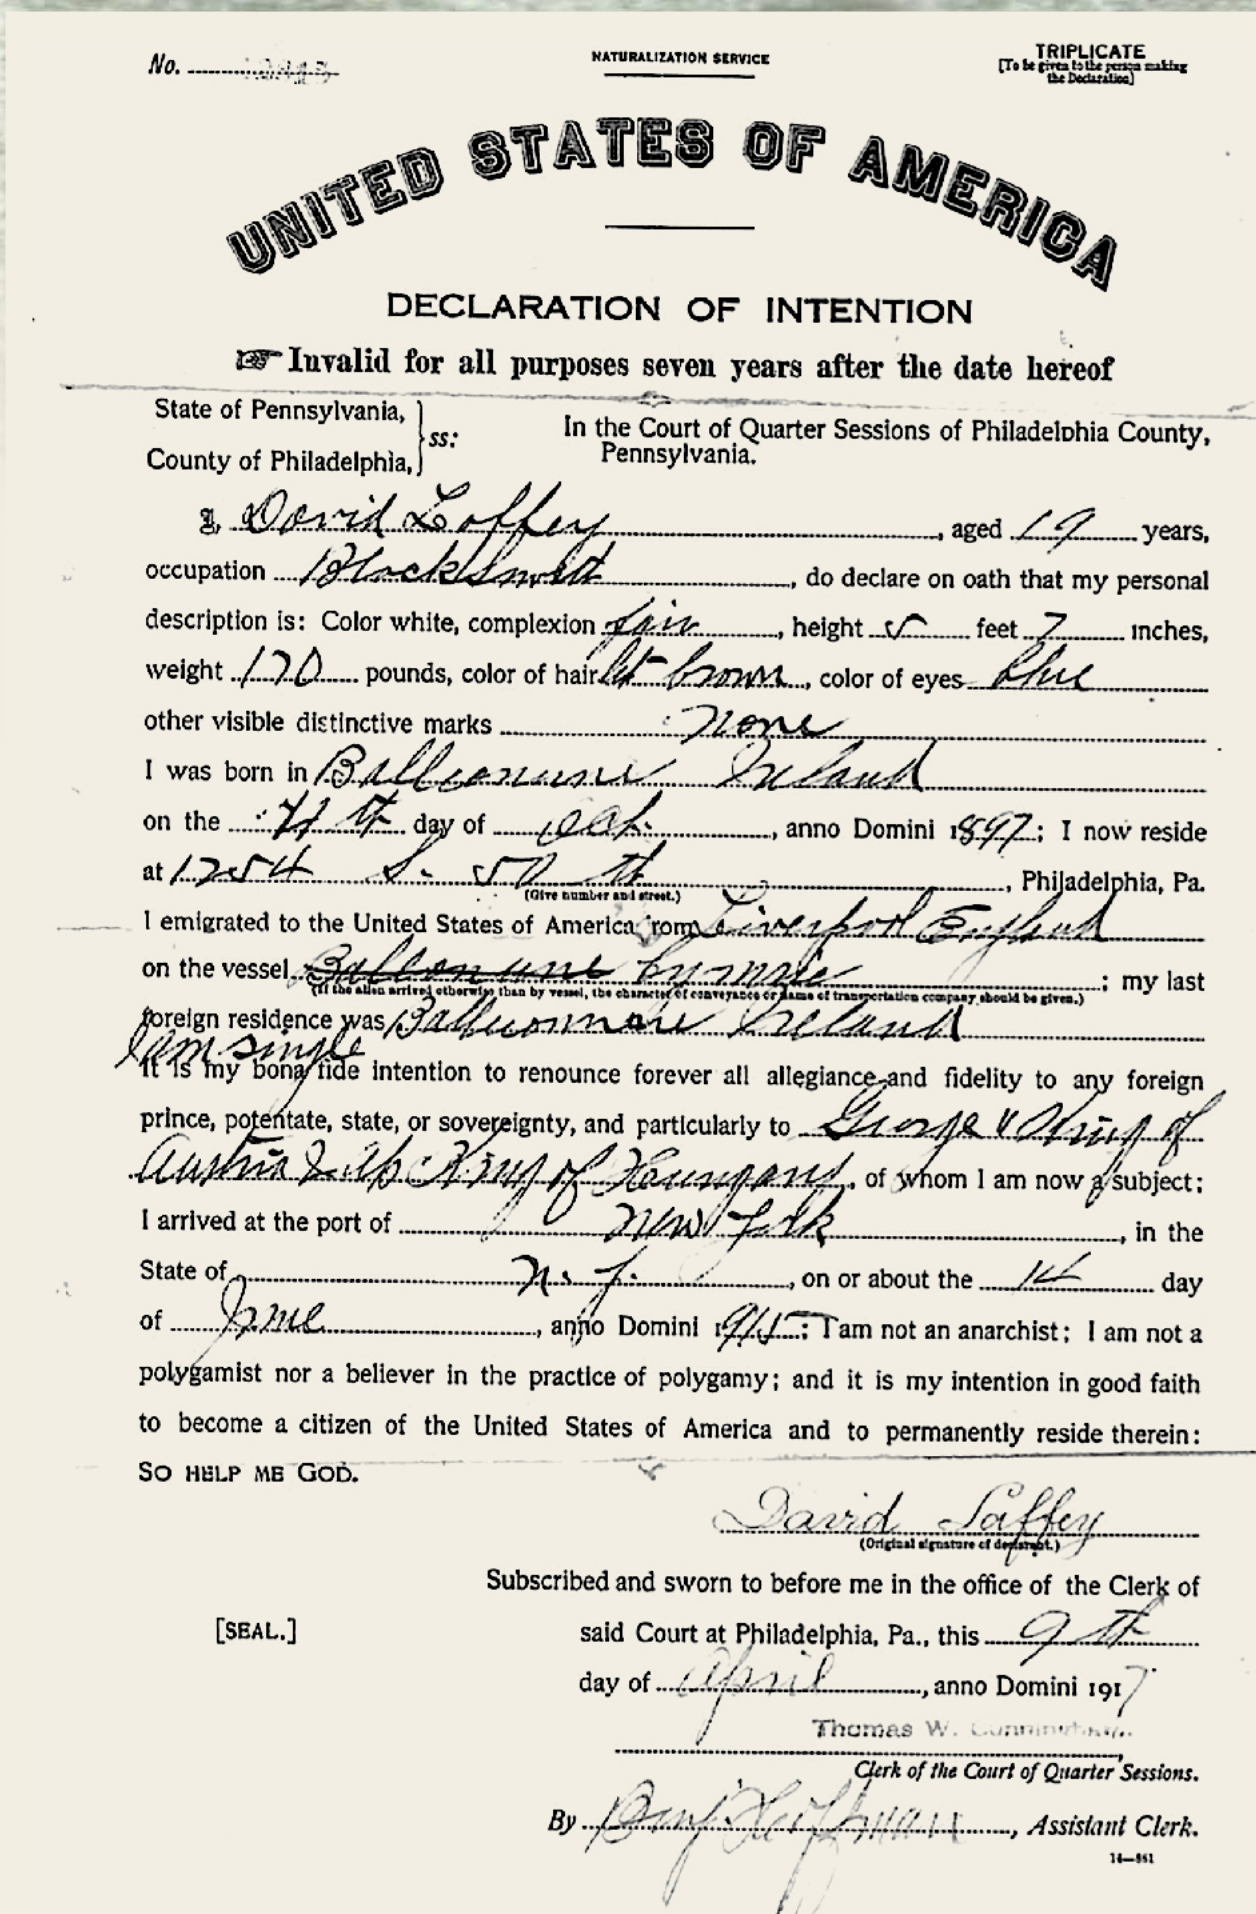 No.
NATURALIZATION SERVICE
TRIPLICATE
[To be given to the person making
the Declaration]
UNITED STATES OF AMERICA
DECLARATION OF INTENTION
☞ Invalid for all purposes seven years after the date hereof
State of Pennsylvania,
County of Philadelphia,
} ss:
In the Court of Quarter Sessions of Philadelphia County,
Pennsylvania.
I, David Laffey, aged 19 years,
occupation Blacksmith, do declare on oath that my personal
description is: Color white, complexion fair, height 5 feet 7 inches,
weight 170 pounds, color of hair lt brown, color of eyes blue
other visible distinctive marks none
I was born in Ireland
on the day of Oct., anno Domini 1897; I now reside
at 1254 S. 50 th, Philadelphia, Pa.
(Give number and street.)
I emigrated to the United States of America from Liverpool England
on the vessel ; my last
(If the alien arrived otherwise than by vessel, the character of conveyance or name of transportation company should be given.)
foreign residence was Ireland
I am single
It is my bona fide intention to renounce forever all allegiance and fidelity to any foreign
prince, potentate, state, or sovereignty, and particularly to George V King of
Austria & Ap. King of, of whom I am now a subject;
I arrived at the port of New York, in the
State of, on or about the 14 day
of June, anno Domini 1915; I am not an anarchist; I am not a
polygamist nor a believer in the practice of polygamy; and it is my intention in good faith
to become a citizen of the United States of America and to permanently reside therein:
SO HELP ME GOD.
David Laffey
(Original signature of declarant.)
Subscribed and sworn to before me in the office of the Clerk of
[SEAL.]
said Court at Philadelphia, Pa., this 9 th
day of April, anno Domini 1917
Thomas W. Cunningham.
Clerk of the Court of Quarter Sessions.
By Benj Hoffman, Assistant Clerk.